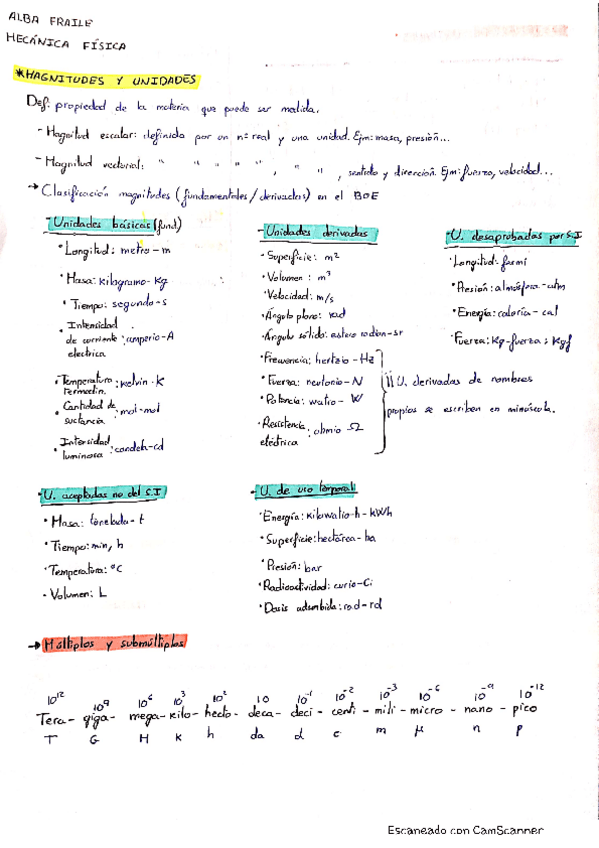 ALBA FRAILE
MECÁNICA FÍSICA
*MAGNITUDES Y UNIDADES
Def: propiedad de la materia que puede ser medida.
- Magnitud escalar: definida por un nº real y una unidad. Ejm: masa, presión...
- Magnitud vectorial: " " " " " " , " " , sentido y dirección. Ejm: fuerza, velocidad...
→ Clasificación magnitudes (fundamentales/derivadas) en el BOE
- Unidades básicas (fund)
· Longitud: metro - m
· Masa: kilogramo - Kg
· Tiempo: segundo - s
· Intensidad de corriente electrica: amperio - A
· Temperatura termodin.: kelvin - K
· Cantidad de sustancia: mol - mol
· Intensidad luminosa: candela - cd
- Unidades derivadas
· Superficie: m²
· Volumen: m³
· Velocidad: m/s
· Ángulo plano: rad
· Ángulo sólido: estereo radian - sr
· Frecuencia: hertzio - Hz
· Fuerza: newtonio - N
· Potencia: watio - W
· Resistencia eléctrica: ohmio Ω
¡¡ U. derivadas de nombres
propios se escriben en minúscula.
- U. desaprobadas por S.I
· Longitud: fermi
· Presión: atmósfera - atm
· Energía: caloría - cal
· Fuerza: Kg-fuerza: Kgf
- U. aceptadas no del S.I
· Masa: tonelada - t
· Tiempo: min, h
· Temperatura: ºC
· Volumen: L
- U. de uso temporal
· Energía: Kilowatio-h - KWh
· Superficie: hectárea - ha
· Presión: bar
· Radioactividad: curio - Ci
· Dosis adsorbida: rad - rd
→ Múltiplos y submúltiplos
10¹² 10⁹ 10⁶ 10³ 10² 10 10⁻¹ 10⁻² 10⁻³ 10⁻⁶ 10⁻⁹ 10⁻¹²
Tera - giga - mega - kilo - hecto - deca - deci - centi - mili - micro - nano - pico
T G M K h da d c m μ n p
Escaneado con CamScanner